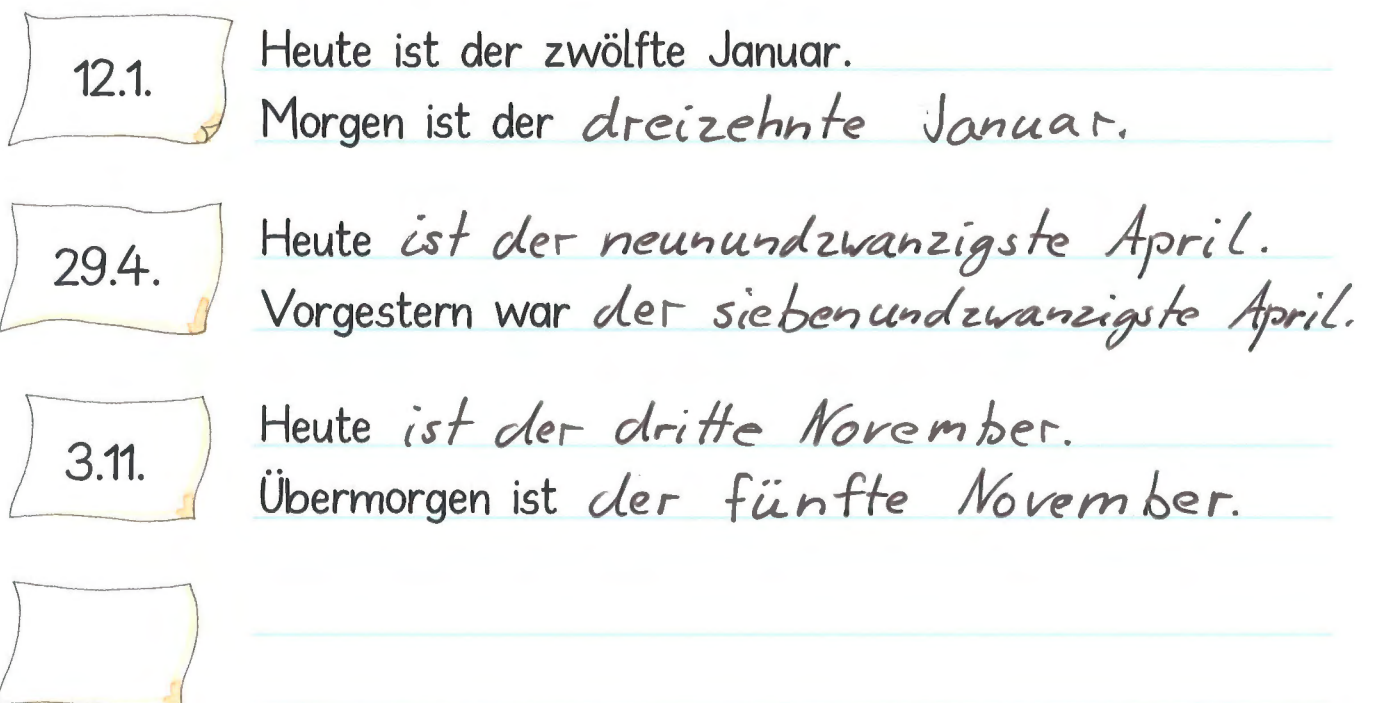 12.1.
Heute ist der zwölfte Januar.
Morgen ist der dreizehnte Januar.
29.4.
Heute ist der neunundzwanzigste April.
Vorgestern war der siebenundzwanzigste April.
3.11.
Heute ist der dritte November.
Übermorgen ist der fünfte November.